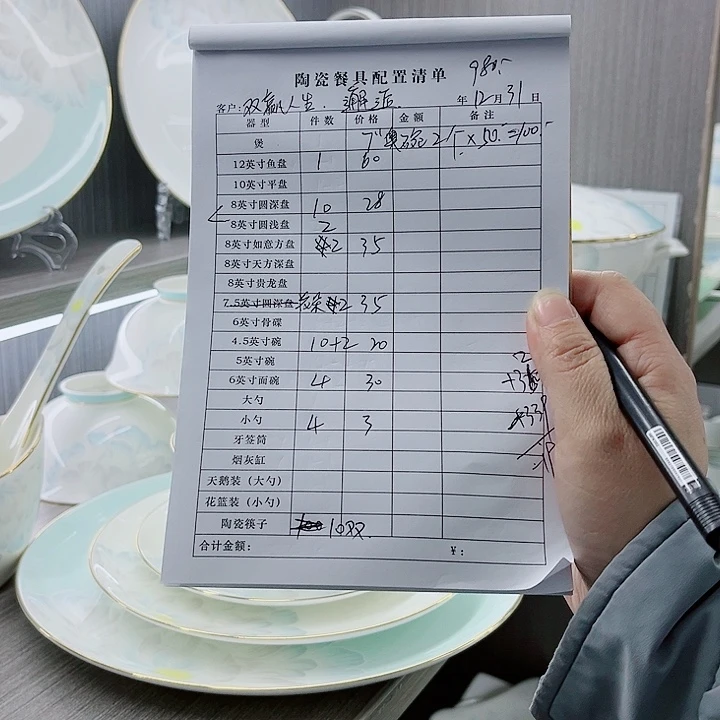 陶瓷餐具配置清单 980.
客户: 双赢人生. 年12月31日
器型 件数 价格 金额 备注
煲 7" 碗 2个×50.=100.
12英寸鱼盘 1 60
10英寸平盘
8英寸圆深盘 10 28
8英寸圆浅盘 2
8英寸如意方盘 2 35
8英寸天方深盘
8英寸贵龙盘
7.5英寸圆深盘 2 35
6英寸骨碟
4.5英寸碗 10+2 20
5英寸碗
6英寸面碗 4 30
大勺
小勺 4 3
牙签筒
烟灰缸
天鹅装（大勺）
花篮装（小勺）
陶瓷筷子 10双.
合计金额: ¥: